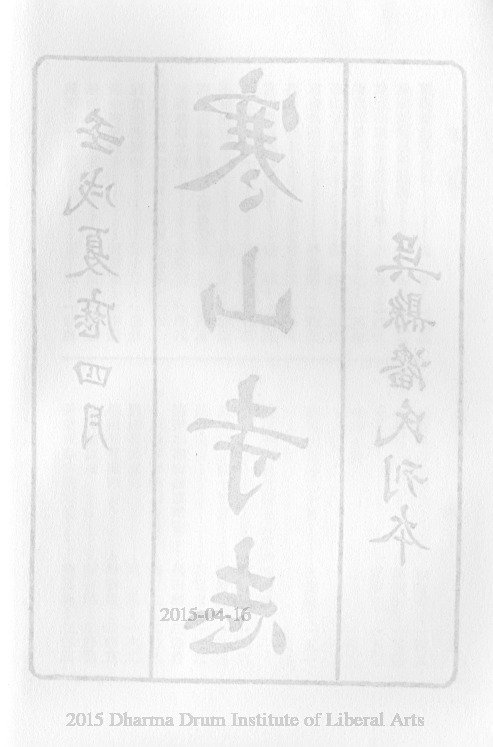 壬戌夏四月
寒山寺志
吳縣潘氏刊本
2015-04-16
2015 Dharma Drum Institute of Liberal Arts